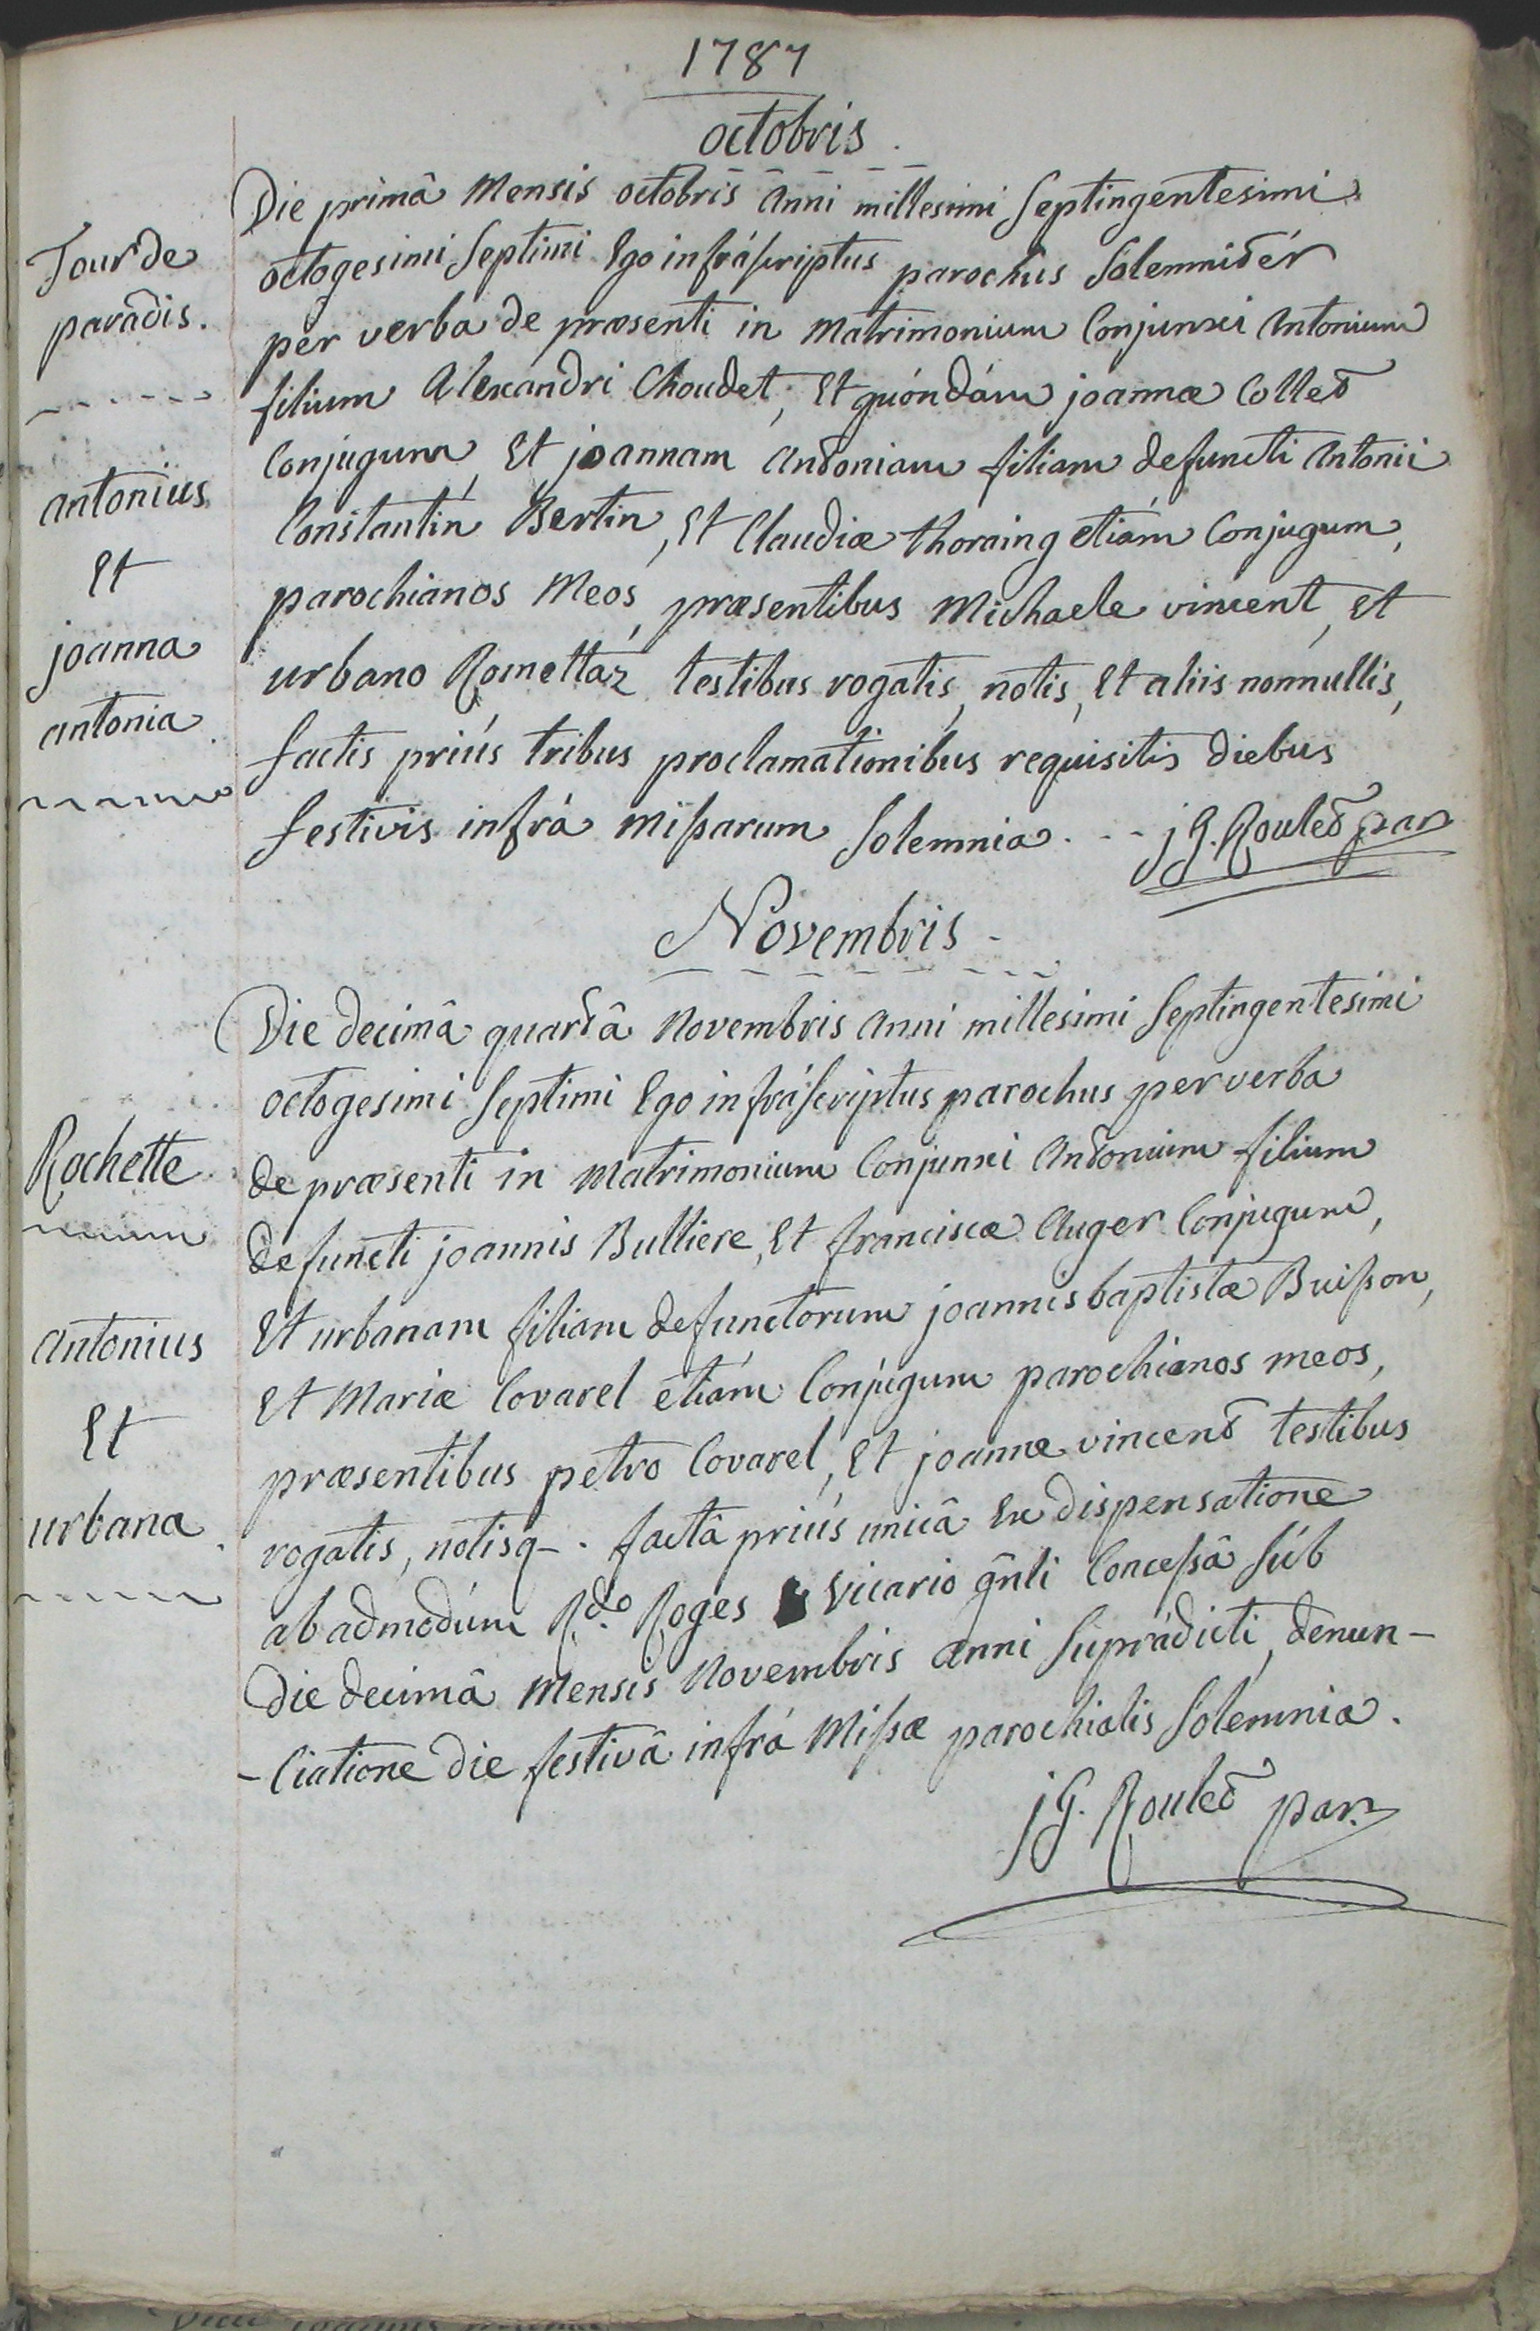 1787
octobris.
Die primâ Mensis octobris anni millesimi Septingentesimi
octogesimi Septimi Ego infráscriptus parochus Solemnitér
per verba de præsenti in Matrimonium Conjunxi Antonium
filium Alexandri Choudet, Et quóndám joannæ Collet
Conjugum, Et joannam Antoniam filiam defuncti Antonii
Constantin Bertin, Et Claudiæ thoraing etiám Conjugum,
parochianos Meos, præsentibus Michaele vincent, Et
urbano Romettaz testibus rogatis, notis, Et aliis nonnullis,
factis priús tribus proclamationibus requisitis diebus
festivis infrá Missarum Solemnia. - - jG. Roulet par
Tour de
paradis.
antonius
Et
joanna
antonia
Novembris -
Die decimâ quartâ Novembris Anni millesimi Septingentesimi
octogesimi Septimi Ego infráScriptus parochus per verba
de præsenti in Matrimonium Conjunxi Antonium filium
defuncti joannis Bulliere, Et franciscæ Auger Conjugum,
Et urbanam filiam defunctorum joannis baptistæ Buisson,
Et Mariæ Covarel etiám Conjugum parochianos meos,
præsentibus petro Covarel, Et joanne vincent testibus
rogatis, notisq-. factâ priús unicâ Ex dispensatione
ab admodúm Rdo. Roges Vicario gñli Concessâ Súb
Die decimâ Mensis Novembris anni Suprádicti, denun-
-Ciatione die festivâ infrá Missæ parochialis Solemnia.
jG. Roulet par.
Rochette
antonius
Et
urbana